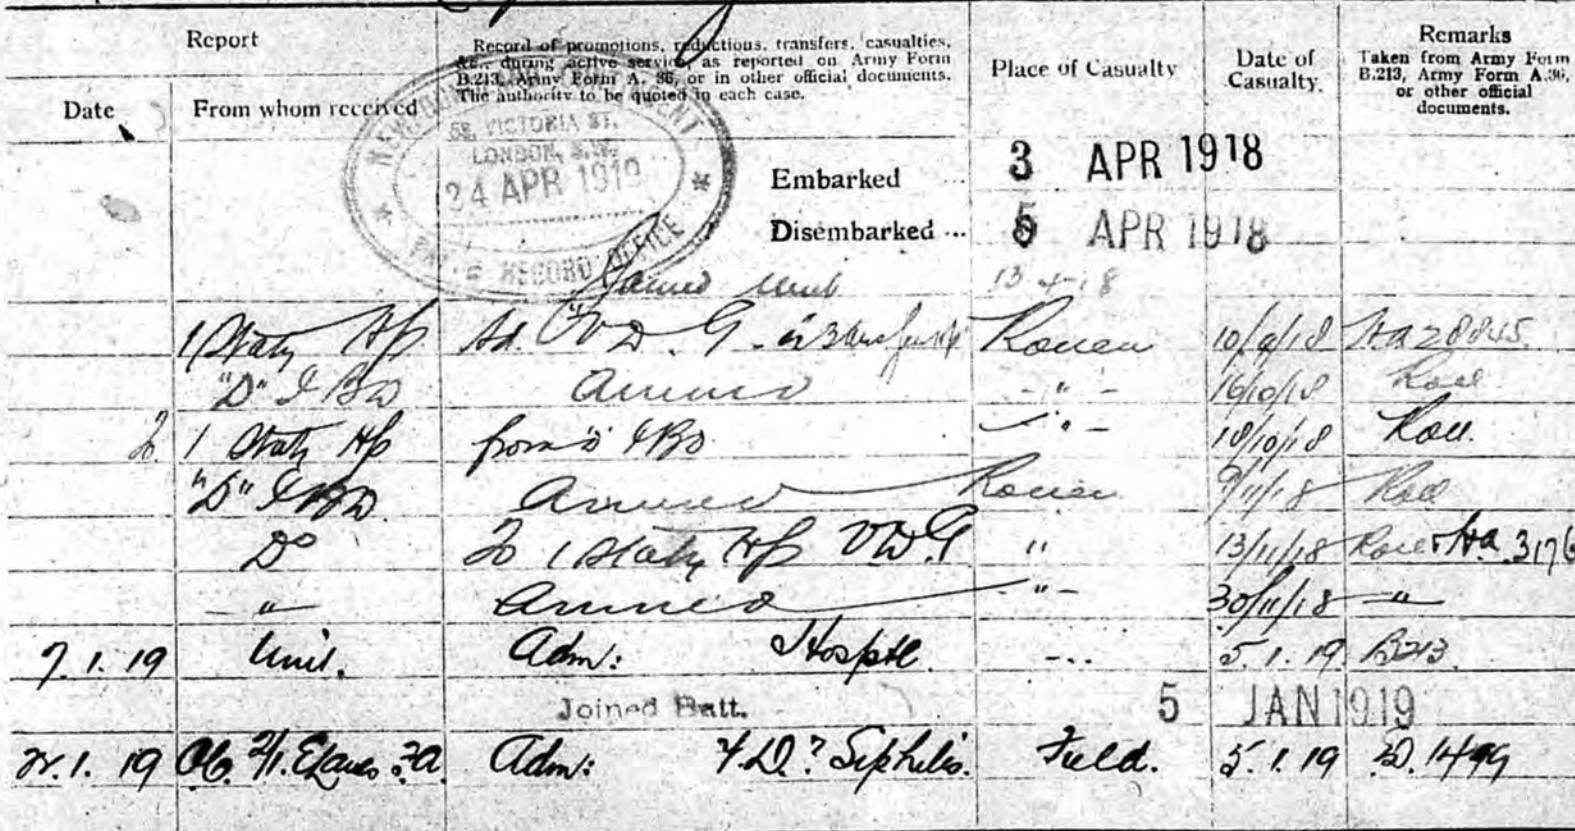 Report
Record of promotions, reductions, transfers, casualties,
&c., during active service, as reported on Army Form
B.213, Army Form A. 36, or in other official documents.
The authority to be quoted in each case.
Place of Casualty
Date of
Casualty.
Remarks
Taken from Army Form
B.213, Army Form A.36,
or other official
documents.
Date
From whom received
58, VICTORIA ST.
LONDON, S.W.
24 APR 1919
PAY & RECORD OFFICE
Embarked ... 3 APR 1918
Disembarked ... 5 APR 1918
Joined Unit 13 4 18
1 Staty Hp Ad. V.D.G. Rouen 10/9/18 HA 28845.
"D" I B D Arrived - " - 16/10/18 Roll
To 1 Staty Hp from "D" I B D - " - 18/10/18 Roll.
"D" I B D. Arrived Rouen 9/11/18 Roll
Do To 1 Staty Hp V D G " 13/11/18 Roll + HA 3176
- " - Arrived - " - 30/11/18 - " -
7. 1. 19 Unit. Adm: Hosptl - " - 5. 1. 19 B213.
Joined Batt. 5 JAN 1919
1. 19 2/1. E. Lancs. F.A. Adm: V.D.? Siphilis. Field. 5. 1. 19 D. 1499